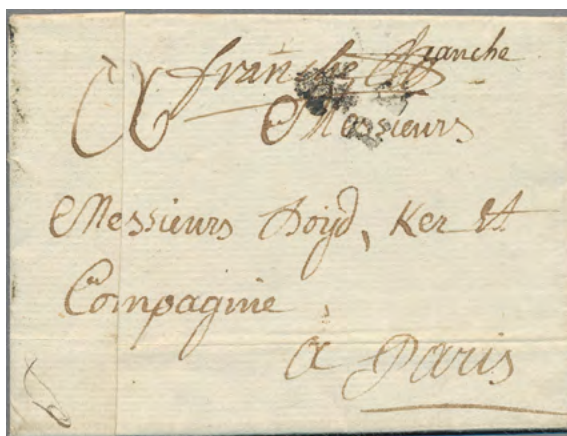 franche
franche
Messieurs
Messieurs Boyd, Ker et
Compagnie,
a Paris